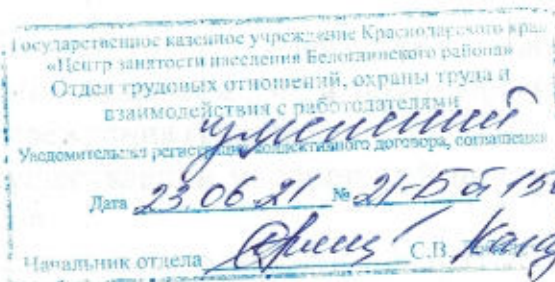 Государственное казенное учреждение Краснодарского края
«Центр занятости населения Белоглинского района»
Отдел трудовых отношений, охраны труда и
взаимодействия с работодателями
Уведомительная регистрация коллективного договора, соглашения
Дата 23.06.21 № 21-Б
Начальник отдела С.В.